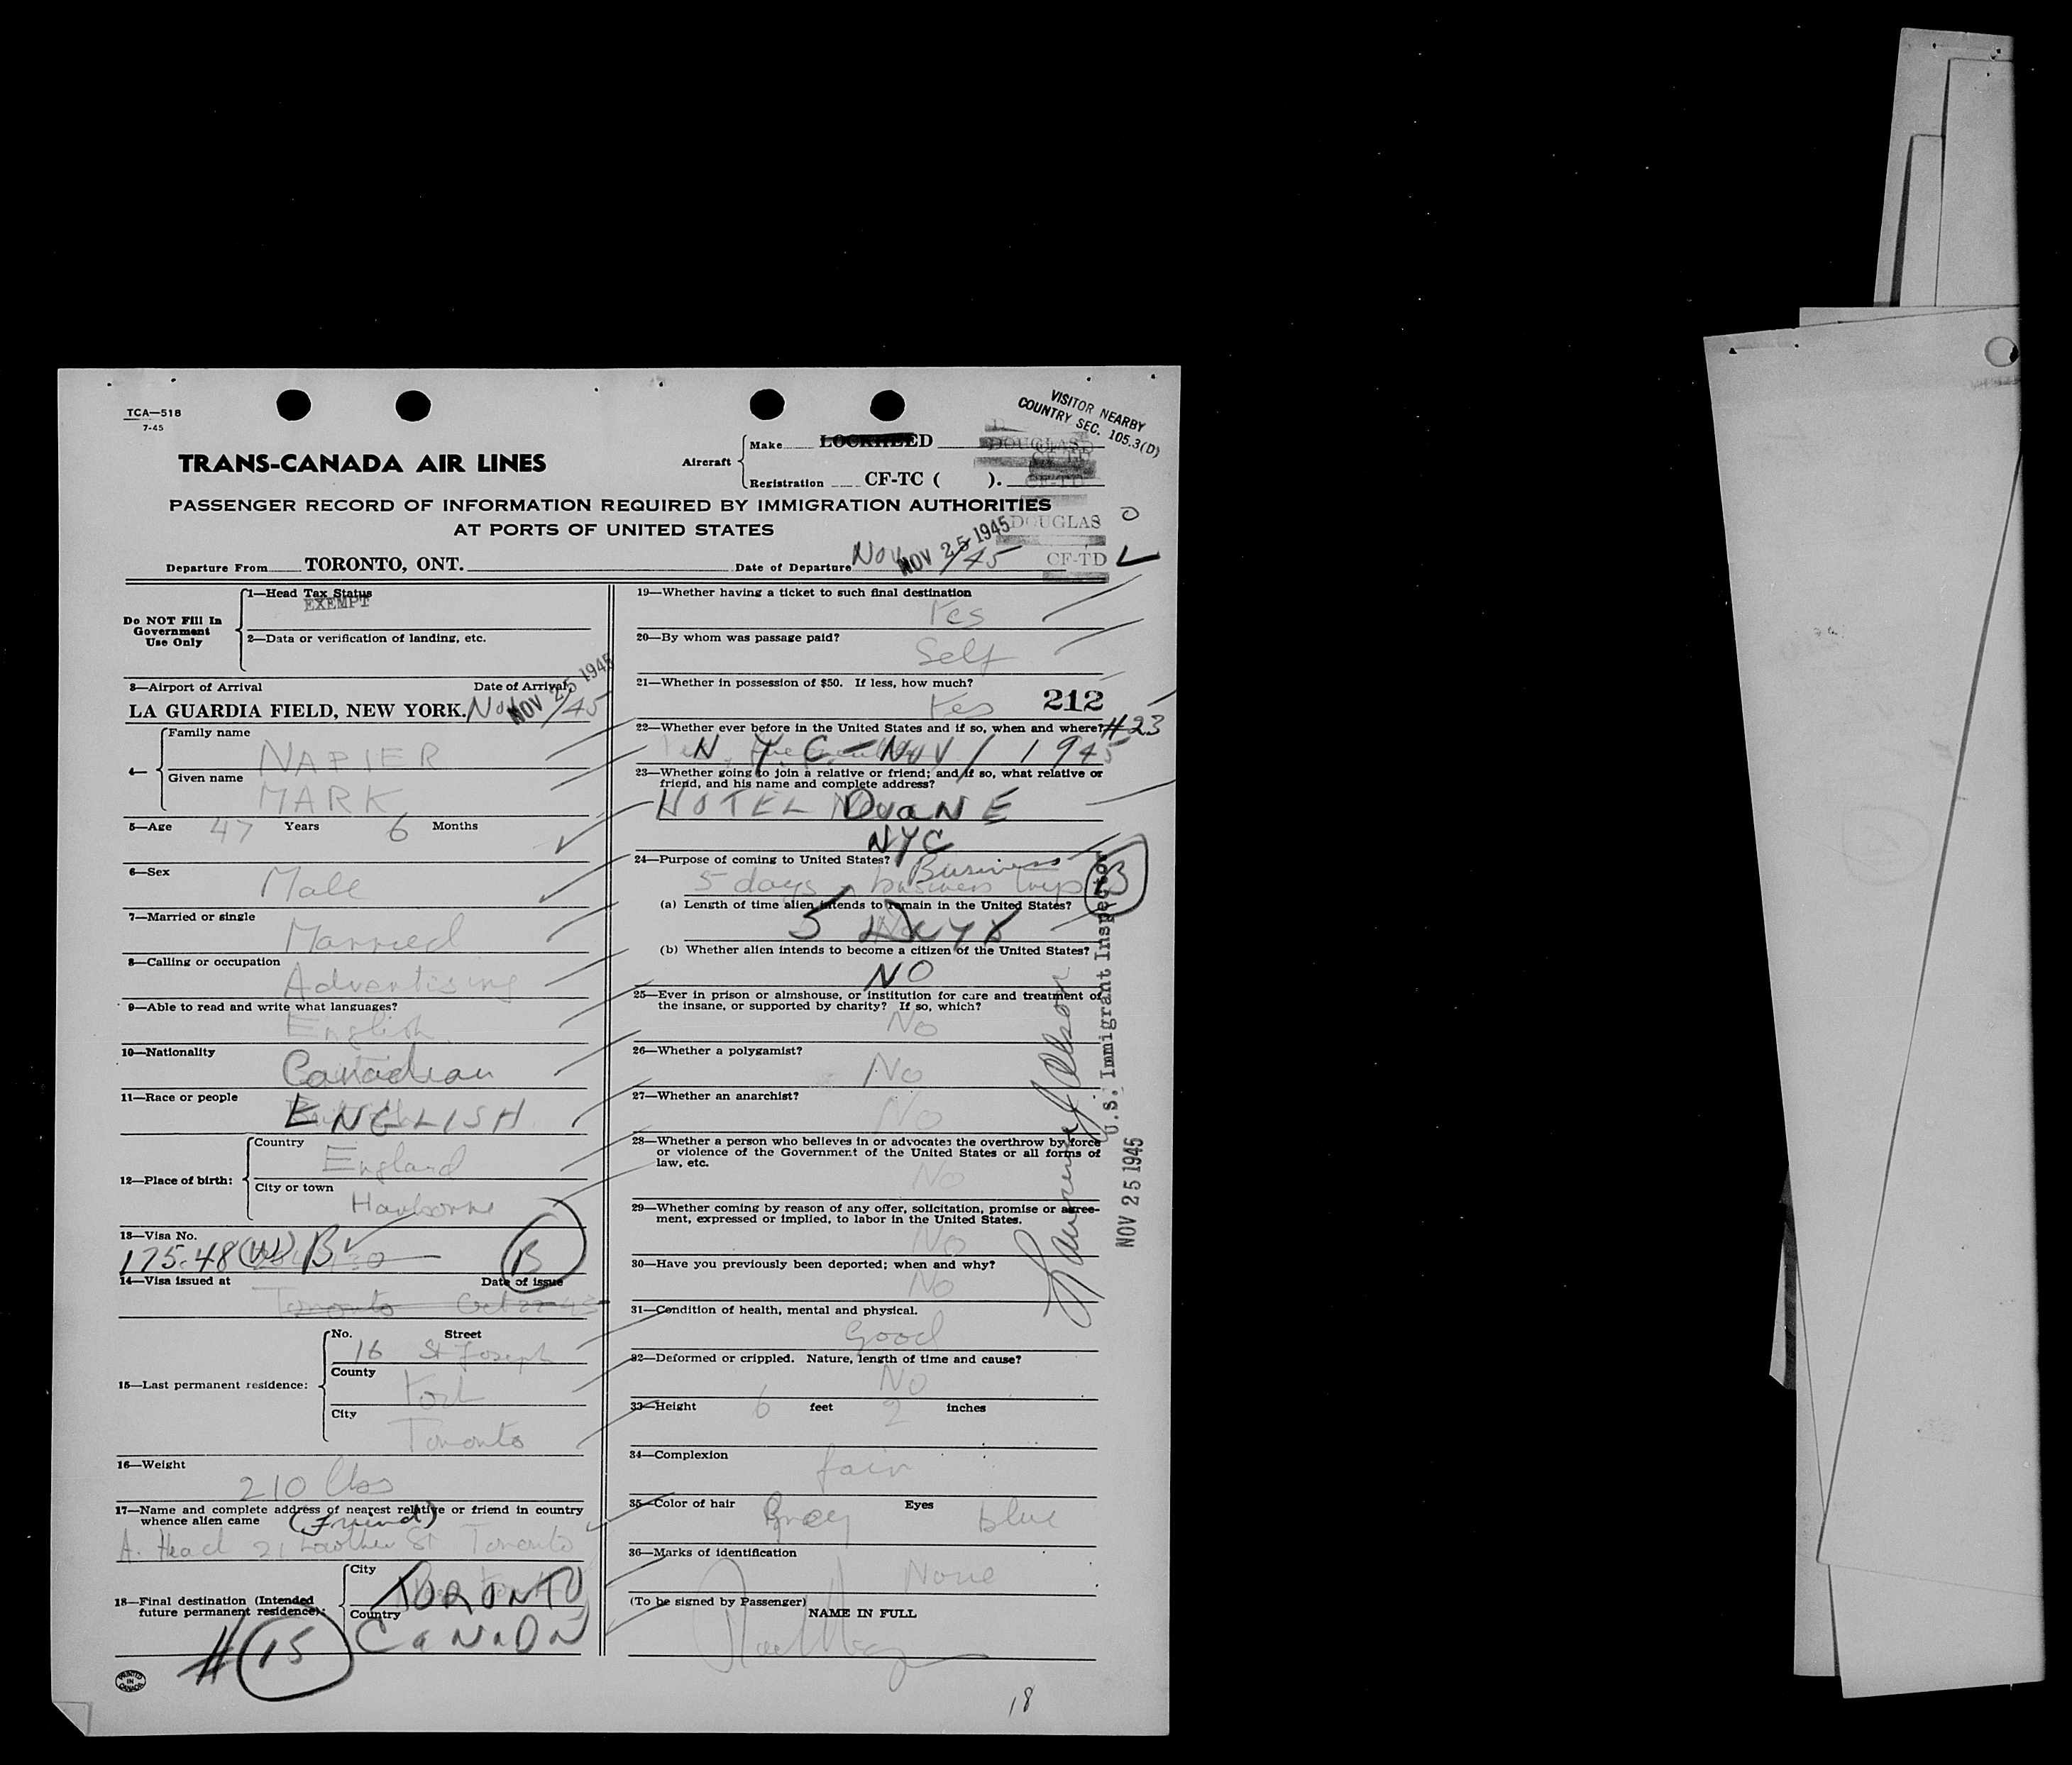 TCA—518
7-45
VISITOR NEARBY
COUNTRY SEC. 105.3(D)
TRANS-CANADA AIR LINES
Aircraft
Make LOCKHEED
DOUGLAS
Registration CF-TC ( ).
PASSENGER RECORD OF INFORMATION REQUIRED BY IMMIGRATION AUTHORITIES
AT PORTS OF UNITED STATES
DOUGLAS
CF-TD
Departure From TORONTO, ONT. Date of Departure Nov /45
NOV 25 1945
Do NOT Fill In
Government
Use Only
1—Head Tax Status
EXEMPT
2—Data or verification of landing, etc.
3—Airport of Arrival Date of Arrival
LA GUARDIA FIELD, NEW YORK. Nov /45
NOV 25 1945
4—
Family name
NAPIER
Given name
MARK
5—Age 47 Years 6 Months
6—Sex
Male
7—Married or single
Married
8—Calling or occupation
Advertising
9—Able to read and write what languages?
English
10—Nationality
Canadian
11—Race or people
ENGLISH
12—Place of birth:
Country
England
City or town
Harborne
13—Visa No.
175.48 B
B
14—Visa issued at Date of issue
Toronto Oct 22-45
15—Last permanent residence:
No. Street
16 St Joseph
County
York
City
Toronto
16—Weight
210 lbs
17—Name and complete address of nearest relative or friend in country
whence alien came (Friend)
A. Head 21 Lowther St Toronto
18—Final destination (Intended
future permanent residence):
City
TORONTO
Country
CANADA
# 15
PRINTED
IN
CANADA
19—Whether having a ticket to such final destination
Yes
20—By whom was passage paid?
Self
21—Whether in possession of $50. If less, how much?
Yes 212
22—Whether ever before in the United States and if so, when and where? #23
N.Y.C.—NOV / 1945
23—Whether going to join a relative or friend; and if so, what relative or
friend, and his name and complete address?
HOTEL DUANE
NYC
24—Purpose of coming to United States? Business
5 days business trip B
(a) Length of time alien intends to remain in the United States?
5 Days
(b) Whether alien intends to become a citizen of the United States?
NO
25—Ever in prison or almshouse, or institution for care and treatment of
the insane, or supported by charity? If so, which?
No
26—Whether a polygamist?
No
27—Whether an anarchist?
No
28—Whether a person who believes in or advocates the overthrow by force
or violence of the Government of the United States or all forms of
law, etc.
No
29—Whether coming by reason of any offer, solicitation, promise or agree-
ment, expressed or implied, to labor in the United States.
No
30—Have you previously been deported; when and why?
No
31—Condition of health, mental and physical.
Good
32—Deformed or crippled. Nature, length of time and cause?
No
33—Height 6 feet 2 inches
34—Complexion
fair
35—Color of hair Grey Eyes blue
36—Marks of identification
None
(To be signed by Passenger)
NAME IN FULL
18
U.S. Immigrant Inspector
NOV 25 1945